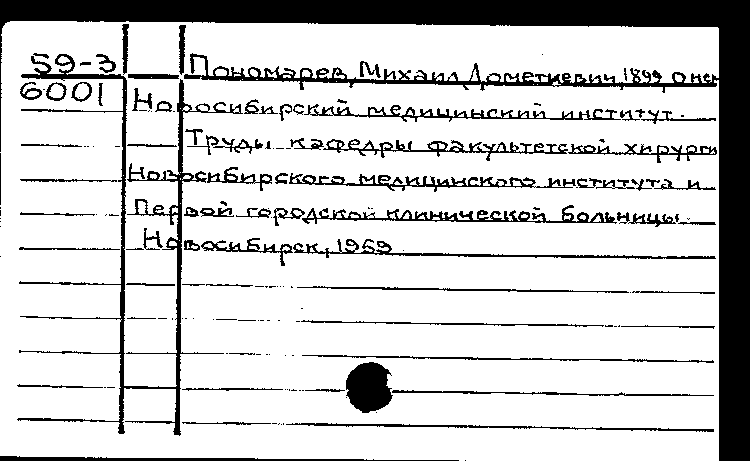 59-3 Пономарев, Михаил Дометиевич, 1899, о нем
6001 Новосибирский медицинский институт.
Труды кафедры факультетской хирурги
Новосибирского медицинского института и
Первой городской клинической больницы.
Новосибирск, 1959